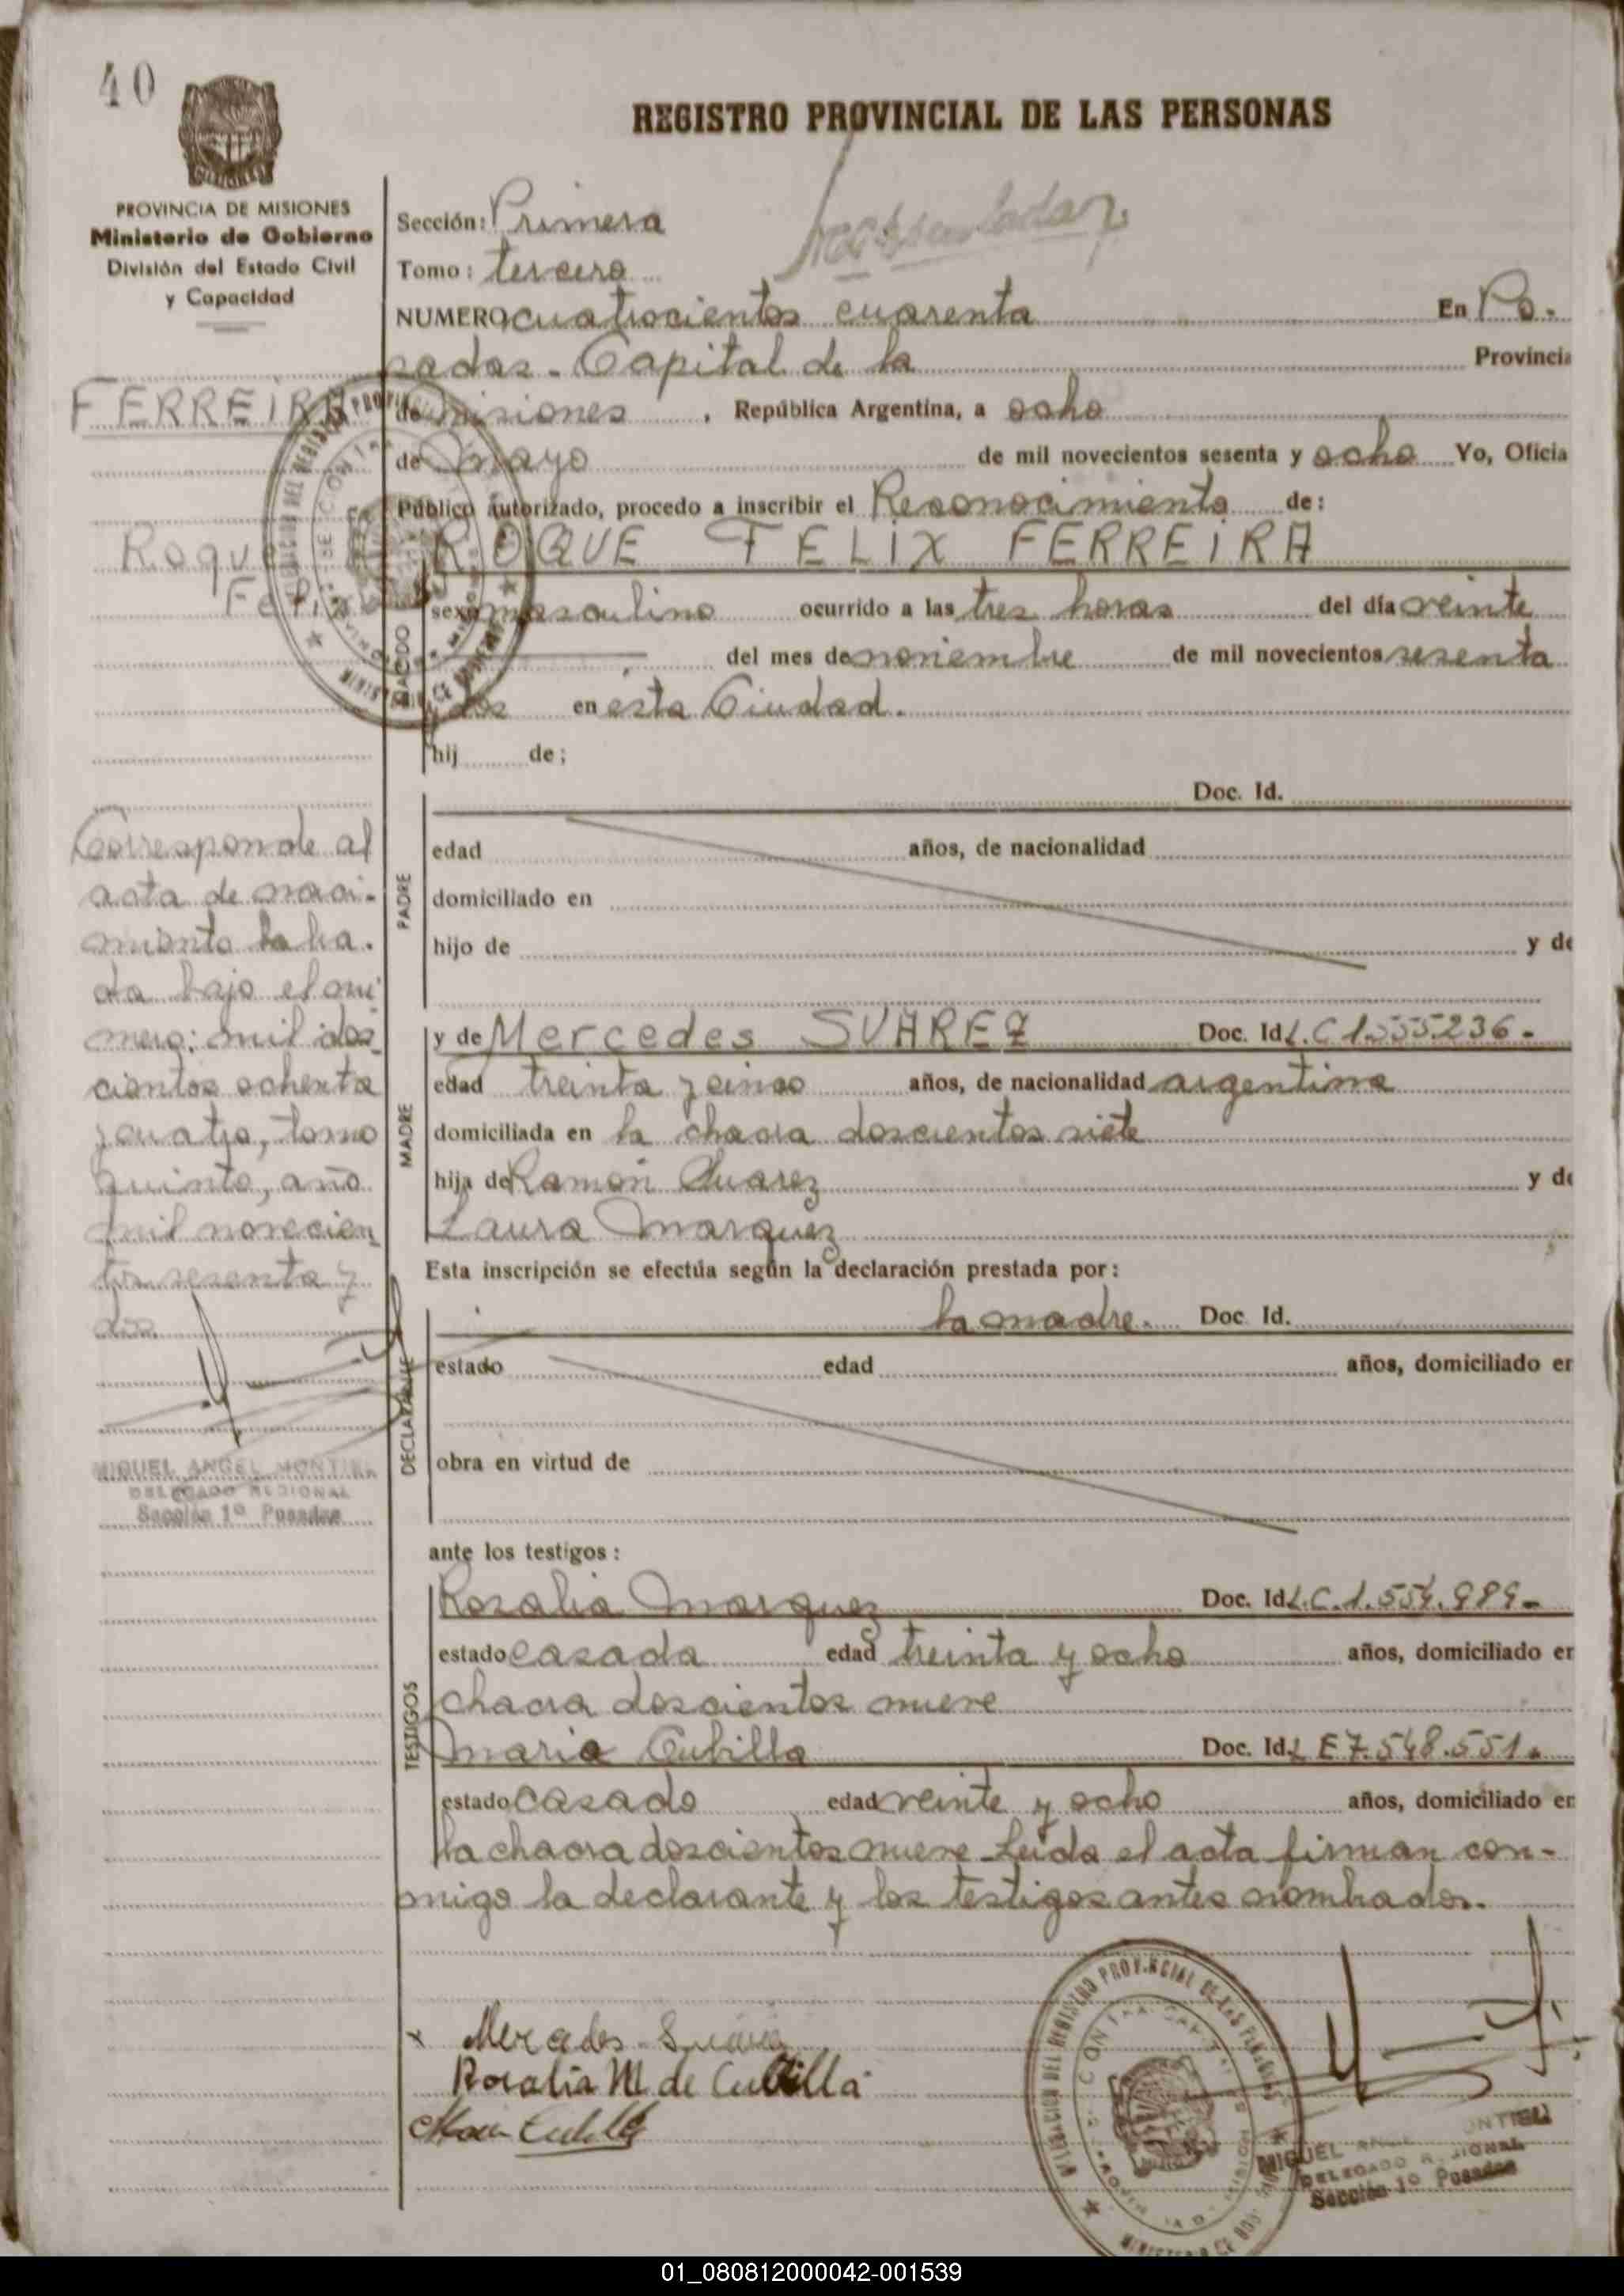 40
REGISTRO PROVINCIAL DE LAS PERSONAS
PROVINCIA DE MISIONES
Ministerio de Gobierno
División del Estado Civil
y Capacidad
Sección: Primera
Tomo: tercero
NUMERO cuatrocientos cuarenta En Po-
sadas - Capital de la Provincia
de misiones, República Argentina, a ocho
de mayo de mil novecientos sesenta y ocho Yo, Oficia
Público autorizado, procedo a inscribir el Reconocimiento de:
ROQUE FELIX FERREIRA
sexo masculino ocurrido a las tres horas del día veinte
del mes de noviembre de mil novecientos sesenta
y dos en esta Ciudad.
hij de;
FERREIRA
Roque
Felix
PADRE
Doc. Id.
edad años, de nacionalidad
domiciliado en
hijo de y de
MADRE
y de Mercedes SUAREZ Doc. Id L.C 1.555.236-
edad treinta y cinco años, de nacionalidad argentina
domiciliada en la chacra doscientos siete
hija de Ramón Suarez y de
Laura Marquez
Esta inscripción se efectúa según la declaración prestada por:
DECLARANTE
la madre. Doc Id.
estado edad años, domiciliado en
obra en virtud de
Corresponde al
acta de naci-
miento labra-
da bajo el nú
mero: mil dos
cientos ochenta
y cuatro, tomo
quinto, año
mil novecien
tos sesenta y
dos.
MIGUEL ANGEL MONTIEL
DELEGADO REGIONAL
Sección 1º Posadas
ante los testigos:
TESTIGOS
Rosalia Marquez Doc. Id L.C.1.554.989-
estado casada edad treinta y ocho años, domiciliado en
chacra doscientos nueve
Mario Cubilla Doc. Id. L E 7.548.551.
estado casado edad veinte y ocho años, domiciliado en
la chacra doscientos nueve - Leída el acta firman con-
migo la declarante y los testigos antes nombrados.
x Mercedes Suarez
Rosalia M de Cubilla
MIGUEL ANGEL MONTIEL
DELEGADO REGIONAL
Sección 1º Posadas
01_080812000042-001539